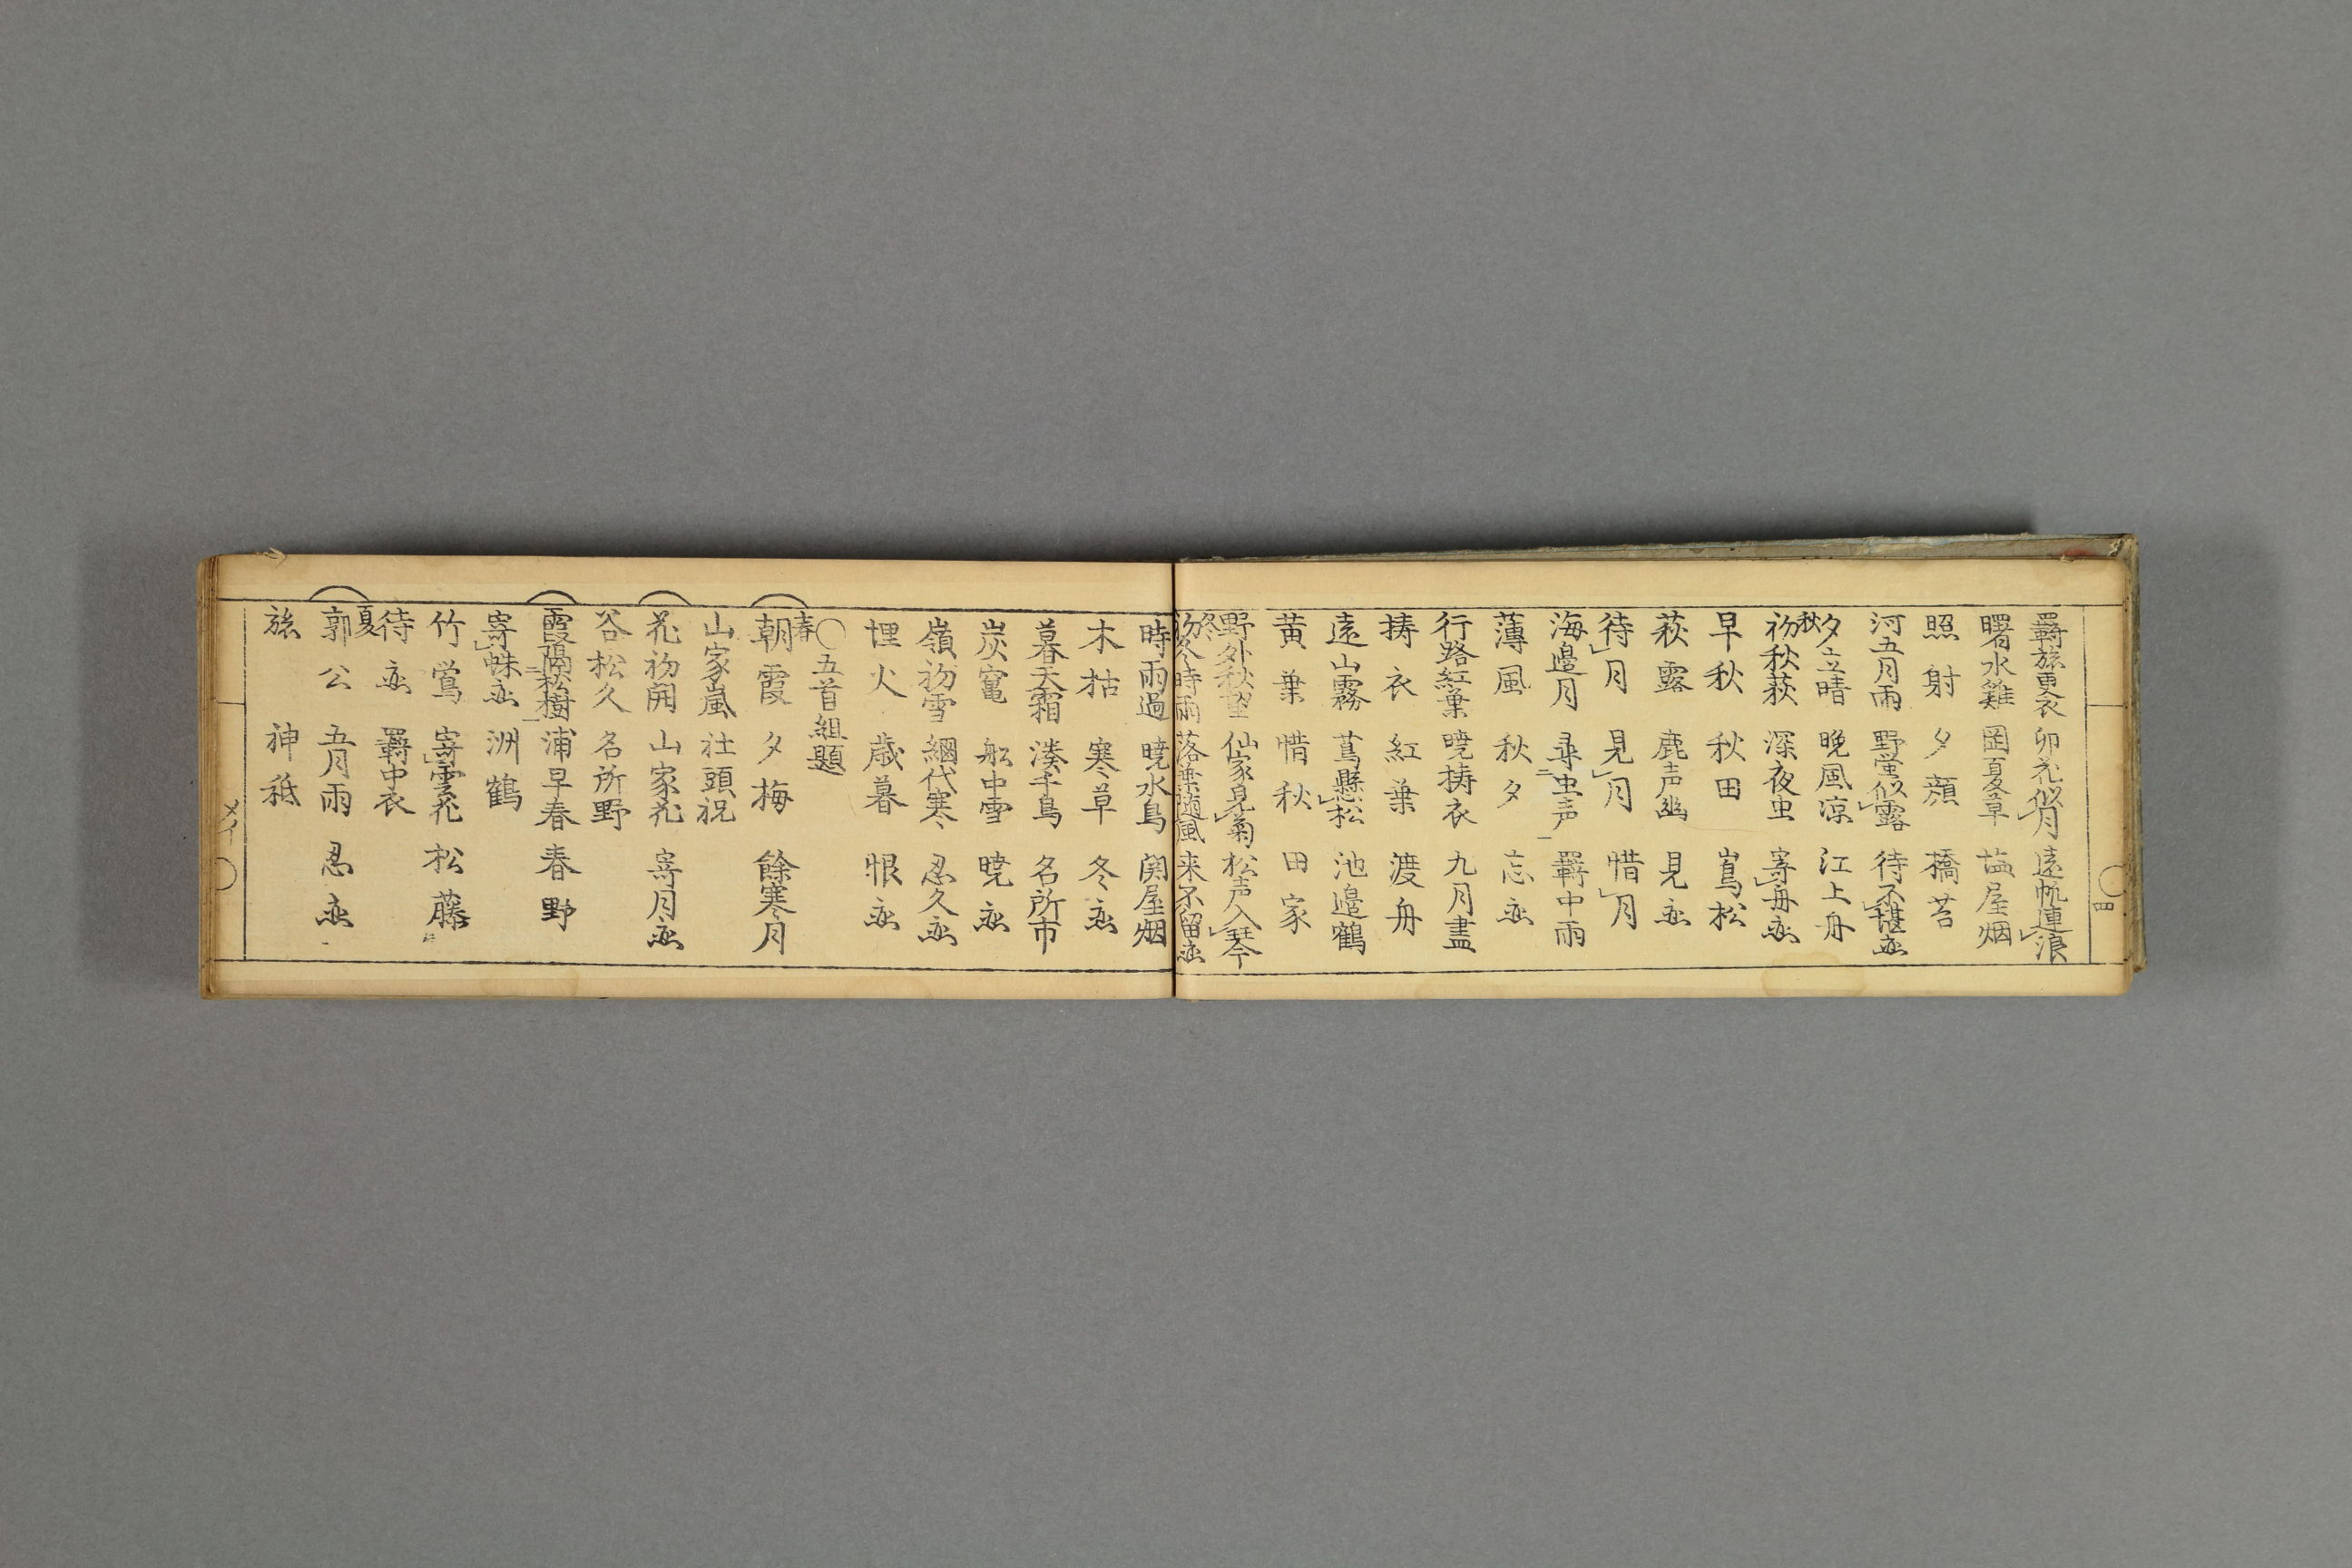 羇旅更衣　卯花似月　遠帆連浪
曙水雞　岡夏草　塩屋烟
照射　夕顔　橋苔
河五月雨　野蛍似露　待不堪恋
夕立晴　晩風凉　江上舟
秋
初秋荻　深夜虫　寄舟恋
早秋　秋田　嶌松
萩露　鹿声幽　見恋
待月　見月　惜月
海邉月　尋虫声　羇中雨
薄風　秋夕　忘恋
行路紅葉　暁擣衣　九月盡
擣衣　紅葉　渡舟
遠山霧　蔦懸松　池邉鶴
黄葉　惜秋　田家
野外秋望　仙家見菊　松声入琴
冬
初冬時雨　落葉随風　来不留恋
時雨過　暁水鳥　関屋烟
木枯　寒草　冬恋
暮天霜　湊千鳥　名所市
炭竃　舩中雪　暁恋
嶺初雪　網代寒　忍久恋
埋火　歳暮　恨恋
〇五首組題
春
朝霞　夕梅　餘寒月
山家嵐　社頭祝
花初開　山家花　寄月恋
谷松久　名所野
霞隔松樹　浦早春　春野
寄蛛恋　洲鶴
竹鴬　寄雲花　松藤
待恋　羇中衣
夏
郭公　五月雨　忍恋
旅　神祇
〇四
〇